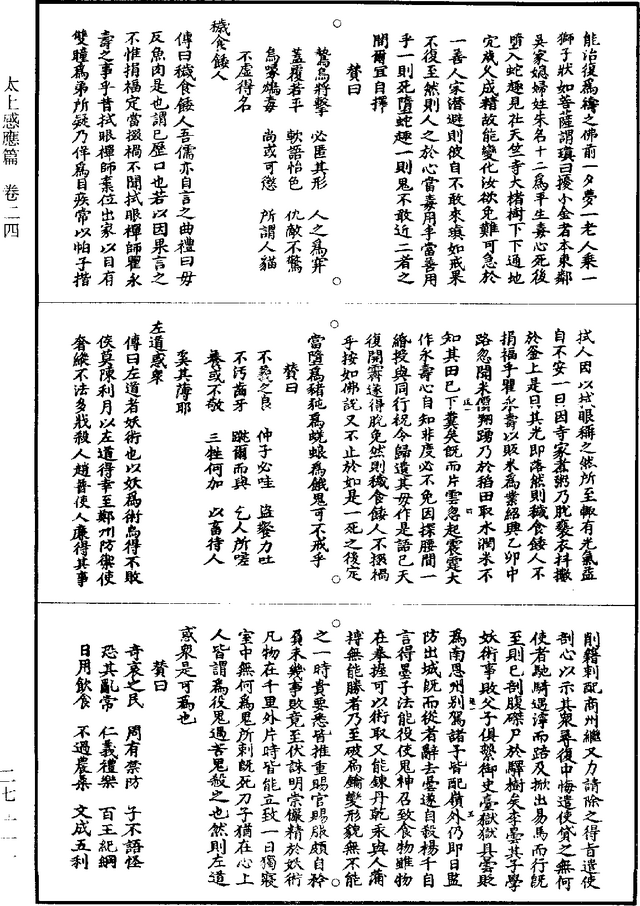 能治復爲禱之佛前一夕夢一老人乘一
獅子狀如菩薩謂瑱曰授小金者本東鄰
吳家媳婦姓朱名十二爲平生毒心死後
墮入蛇趣見社天竺寺大楮樹下下通地
穴歲久成精故能變化汝欲免難可急於
一善人家潛避則彼自不敢來瑱如戒果
不復至然則人之於心當毒用乎當善用
乎一則死墮蛇趣一則鬼不敢近二者之
間爾宜自擇
贊曰
鷙鳥將擊 必匿其形 人之爲穽
蓋覆若平 軟語怡色 仇敵不驚
烏喙鴆毒 尚或可懲 所謂人貓
不虛得名
穢食餧人
傳曰穢食餧人吾儒亦自言之曲禮曰毋
反魚肉是也謂已歷口也若以因果言之
不惟捐福定當掇禍不聞拭眼禪師瞿永
壽之事乎昔拭眼禪師棄位出家以目有
雙瞳爲弟所疑乃佯爲目疾常以帕子揩
拭人因以拭眼稱之然所至輒有光氣盜
自不安一日因寺家煮粥乃脫褻衣抖擻
於釜上是日其光即落然則穢食餧人不
捐福乎瞿永壽以販米爲業紹興乙卯中
路忽聞米𢄙翔踴乃於稻田取水潤米不
知其田已下糞矣既而片雲忽起震霆大
作永壽心自知非度必不免因探腰間一
緡授與同行祝令歸遺其母作是語已天
復開霽遂得脫免然則穢食餧人不掇禍
乎按如佛說又不止於如是一死之後定
當墮爲豬㹠爲蜣蜋爲餓鬼可不戒乎
贊曰
不義之食 仲子必哇 盜餐力吐
不污齒牙 蹴爾而與 乞人所嗟
養或不敬 三牲何加 以畜待人
奚其薄耶
左道惑衆
傳曰左道者妖術也以妖爲術烏得不敗
侯莫陳利月以左道得幸至鄭州防禦使
奢縱不法多戕殺人趙普使人廉得其事
削籍刺配商州繼又力請除之得旨遣使
剖心以示其衆尋復中悔遣使貸之無何
使者馳騎遇濘而踣及掀出易馬而行既
至則已剖腹磔尸於驛樹矣李雲其子學
妖術事敗父子俱繫御史臺獄獄具雲貶
爲南恩州別駕諸子皆配嶺外仍即日監
防出城既而從者辭去曇遂自殺楊千自
言得墨子法能役使鬼神召致食物雖物
在拳握可以術取又能鍊丹乾汞與人蒲
搏無能勝者乃至破扃鑰變形貌無不能
之一時貴要悉皆推重賜官賜服頗自矜
負未幾事敗竟至伏誅明崇儼精於妖術
凡物在千里外片時皆能立致一日獨寢
室中無何爲鬼所刺既死刀子猶在心上
人皆謂爲役鬼過苦鬼殺之也然則左道
惑衆是可爲也
贊曰
奇衺之民 周有禁防 子不語怪
恐其亂常 仁義禮樂 百王紀綱
日用飲食 不過農桑 文成五利
太上感應篇 卷二四